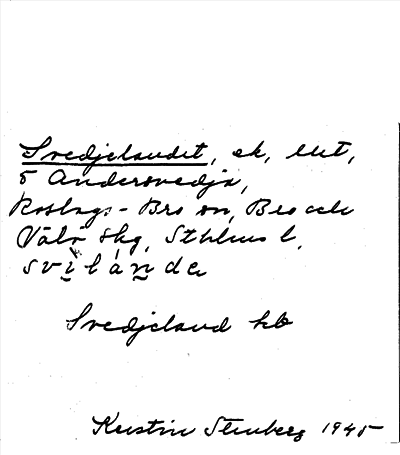 Svedjelandet, ek, litt,
5 Andersvedja,
Roslags-Bro sn, Bro och
Vätö skg, Sthlms l.
svilande
Svedjeland hb
Kerstin Stenberg 1945